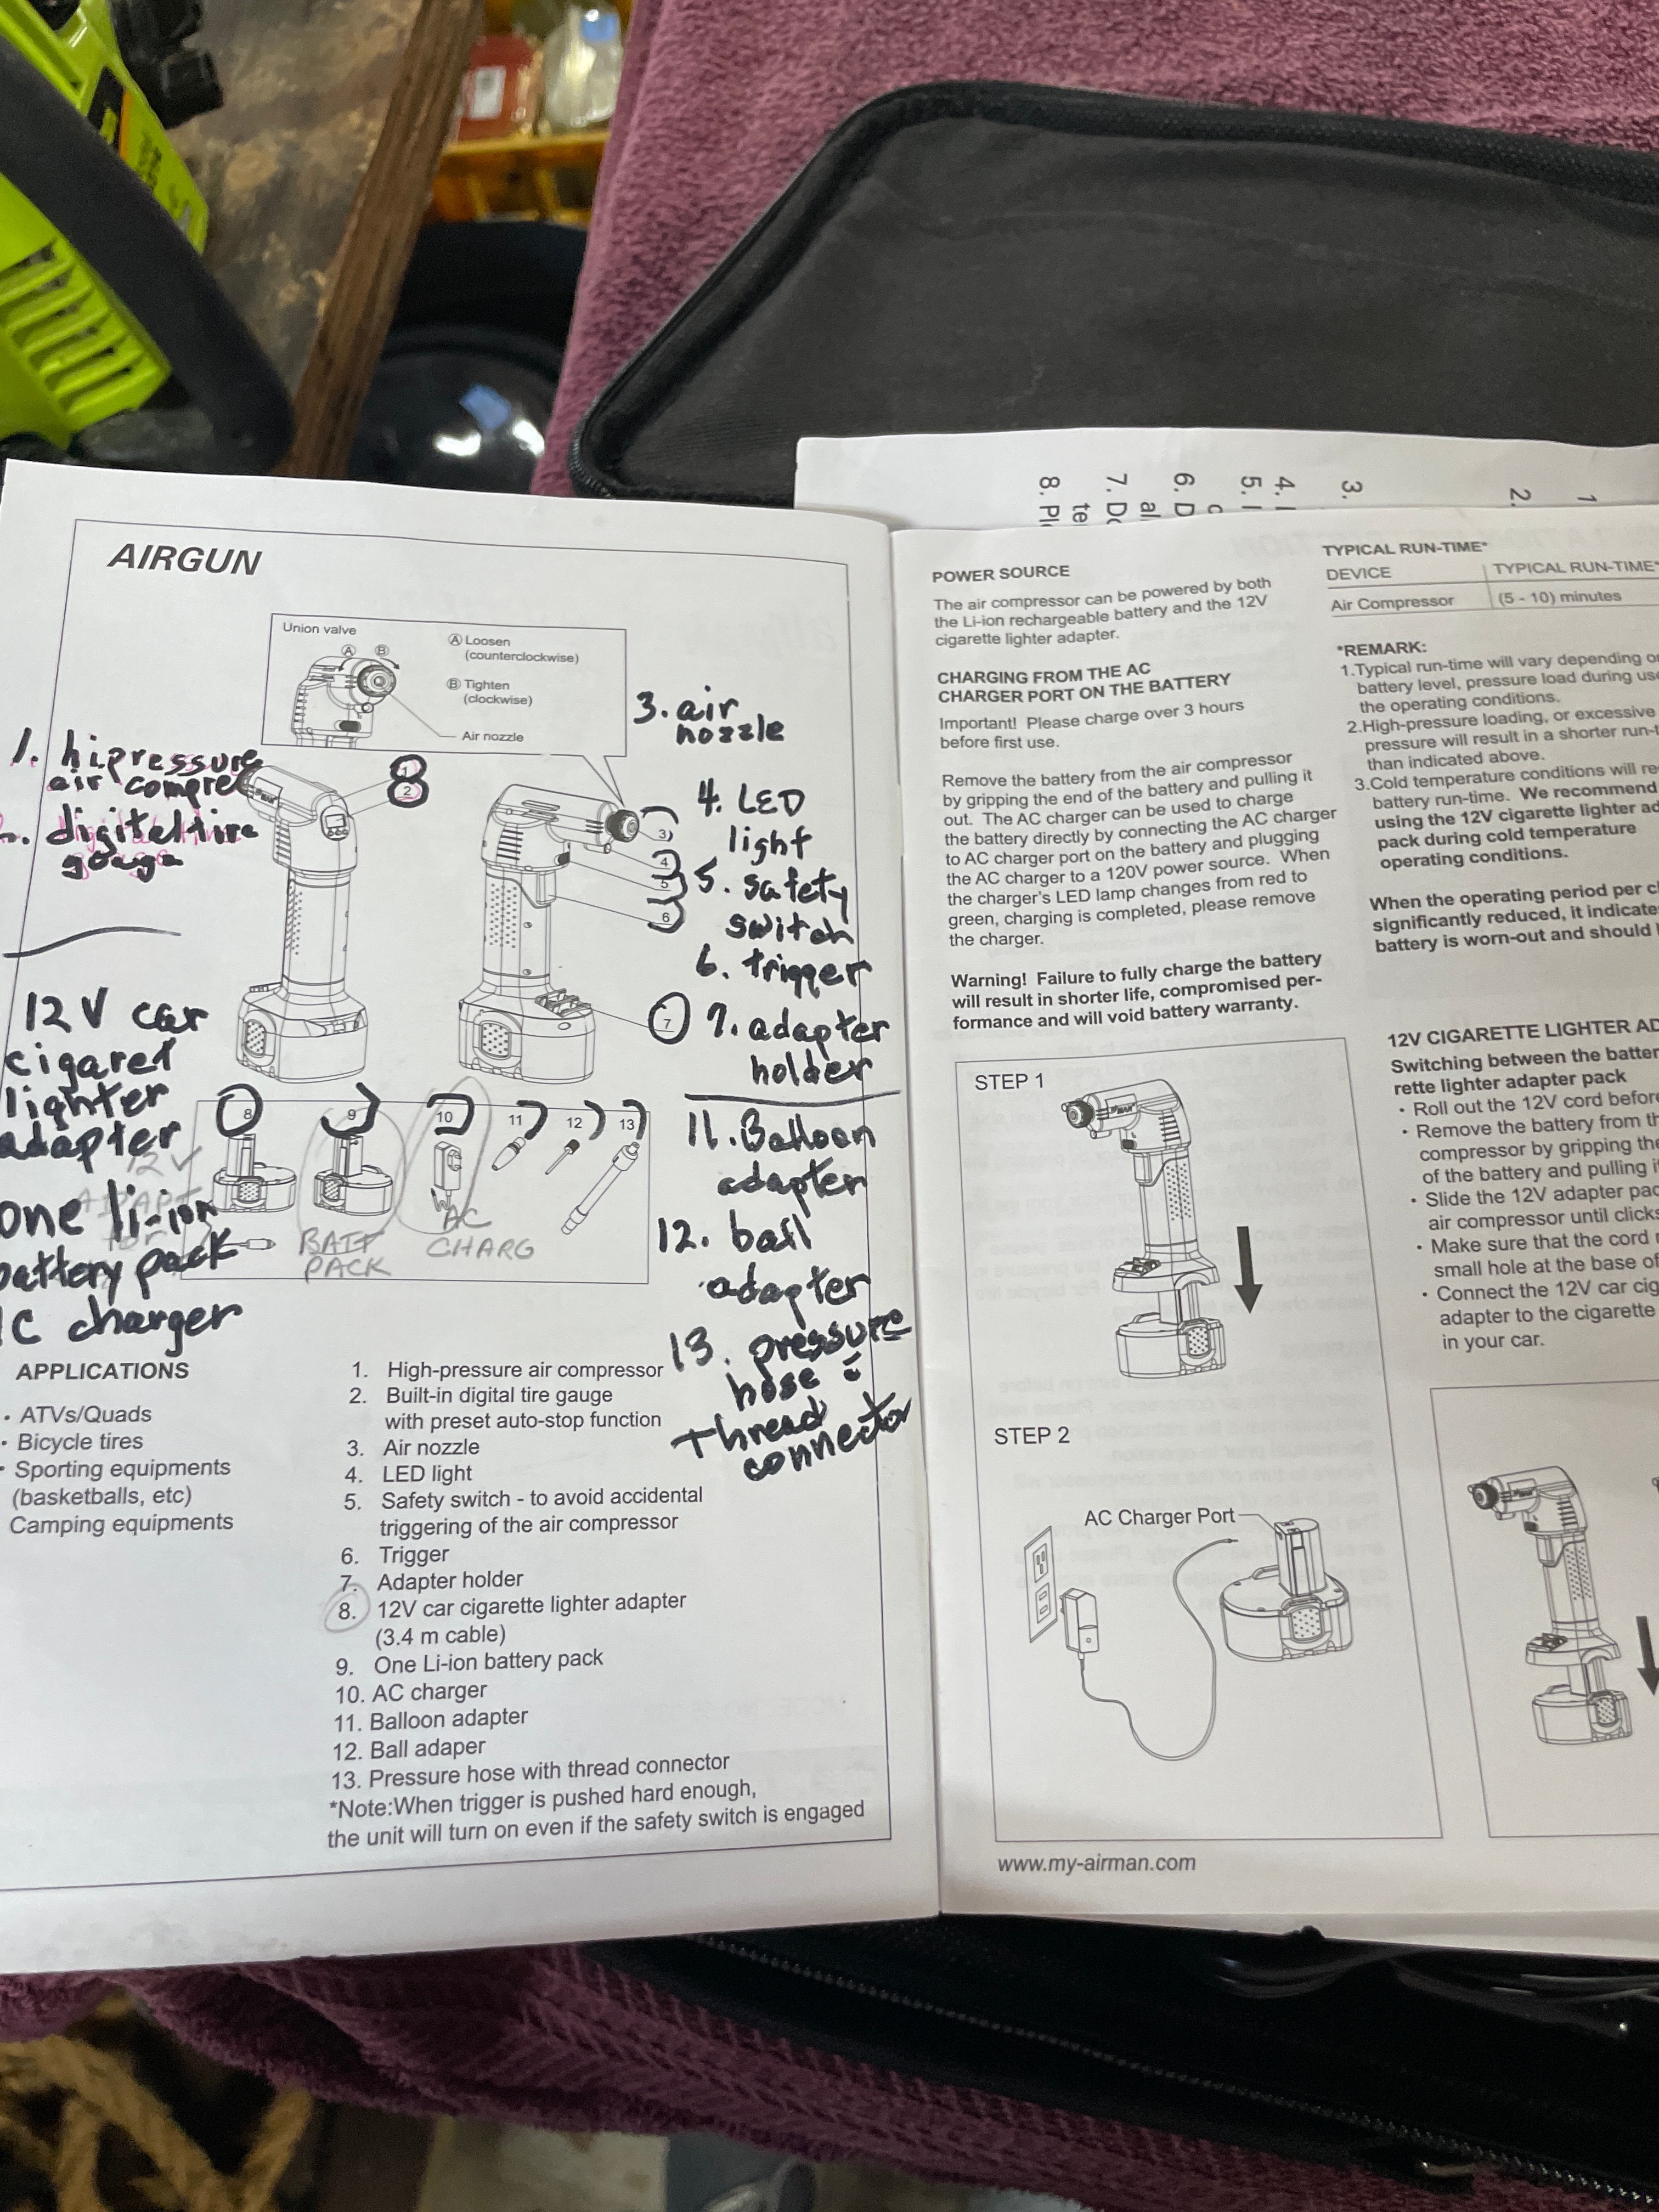 AIRGUN
Union valve
A B
A Loosen
(counterclockwise)
B Tighten
(clockwise)
Air nozzle
1. hi pressure
air compre
digital tire
gouge
1
2
3. air
nozzle
4. LED
light
5. safety
switch
6. trigger
7. adapter
holder
3
4
5
6
7
12V car
cigaret
lighter
adapter
one li-ion
battery pack
C charger
8
9
10
11
12
13
12V
ADAPT
BATT
PACK
AC
CHARG
11. Balloon
adapter
12. ball
adapter
13. pressure
hose
thread
connector
APPLICATIONS
· ATVs/Quads
· Bicycle tires
· Sporting equipments
(basketballs, etc)
Camping equipments
1. High-pressure air compressor
2. Built-in digital tire gauge
with preset auto-stop function
3. Air nozzle
4. LED light
5. Safety switch - to avoid accidental
triggering of the air compressor
6. Trigger
7. Adapter holder
8. 12V car cigarette lighter adapter
(3.4 m cable)
9. One Li-ion battery pack
10. AC charger
11. Balloon adapter
12. Ball adaper
13. Pressure hose with thread connector
*Note:When trigger is pushed hard enough,
the unit will turn on even if the safety switch is engaged
8. Pl
te
7. D
al
6. D
5.
4.
3.
2.
1
POWER SOURCE
The air compressor can be powered by both
the Li-ion rechargeable battery and the 12V
cigarette lighter adapter.
CHARGING FROM THE AC
CHARGER PORT ON THE BATTERY
Important! Please charge over 3 hours
before first use.
Remove the battery from the air compressor
by gripping the end of the battery and pulling it
out. The AC charger can be used to charge
the battery directly by connecting the AC charger
to AC charger port on the battery and plugging
the AC charger to a 120V power source. When
the charger's LED lamp changes from red to
green, charging is completed, please remove
the charger.
Warning! Failure to fully charge the battery
will result in shorter life, compromised per-
formance and will void battery warranty.
STEP 1
STEP 2
AC Charger Port
www.my-airman.com
TYPICAL RUN-TIME*
DEVICE TYPICAL RUN-TIME*
Air Compressor (5 - 10) minutes
*REMARK:
1.Typical run-time will vary depending o
battery level, pressure load during us
the operating conditions.
2.High-pressure loading, or excessive
pressure will result in a shorter run-t
than indicated above.
3.Cold temperature conditions will re
battery run-time. We recommend
using the 12V cigarette lighter ad
pack during cold temperature
operating conditions.
When the operating period per c
significantly reduced, it indicate
battery is worn-out and should
12V CIGARETTE LIGHTER AD
Switching between the batter
rette lighter adapter pack
· Roll out the 12V cord before
· Remove the battery from th
compressor by gripping the
of the battery and pulling i
· Slide the 12V adapter pac
air compressor until clicks
· Make sure that the cord
small hole at the base of
· Connect the 12V car cig
adapter to the cigarette
in your car.